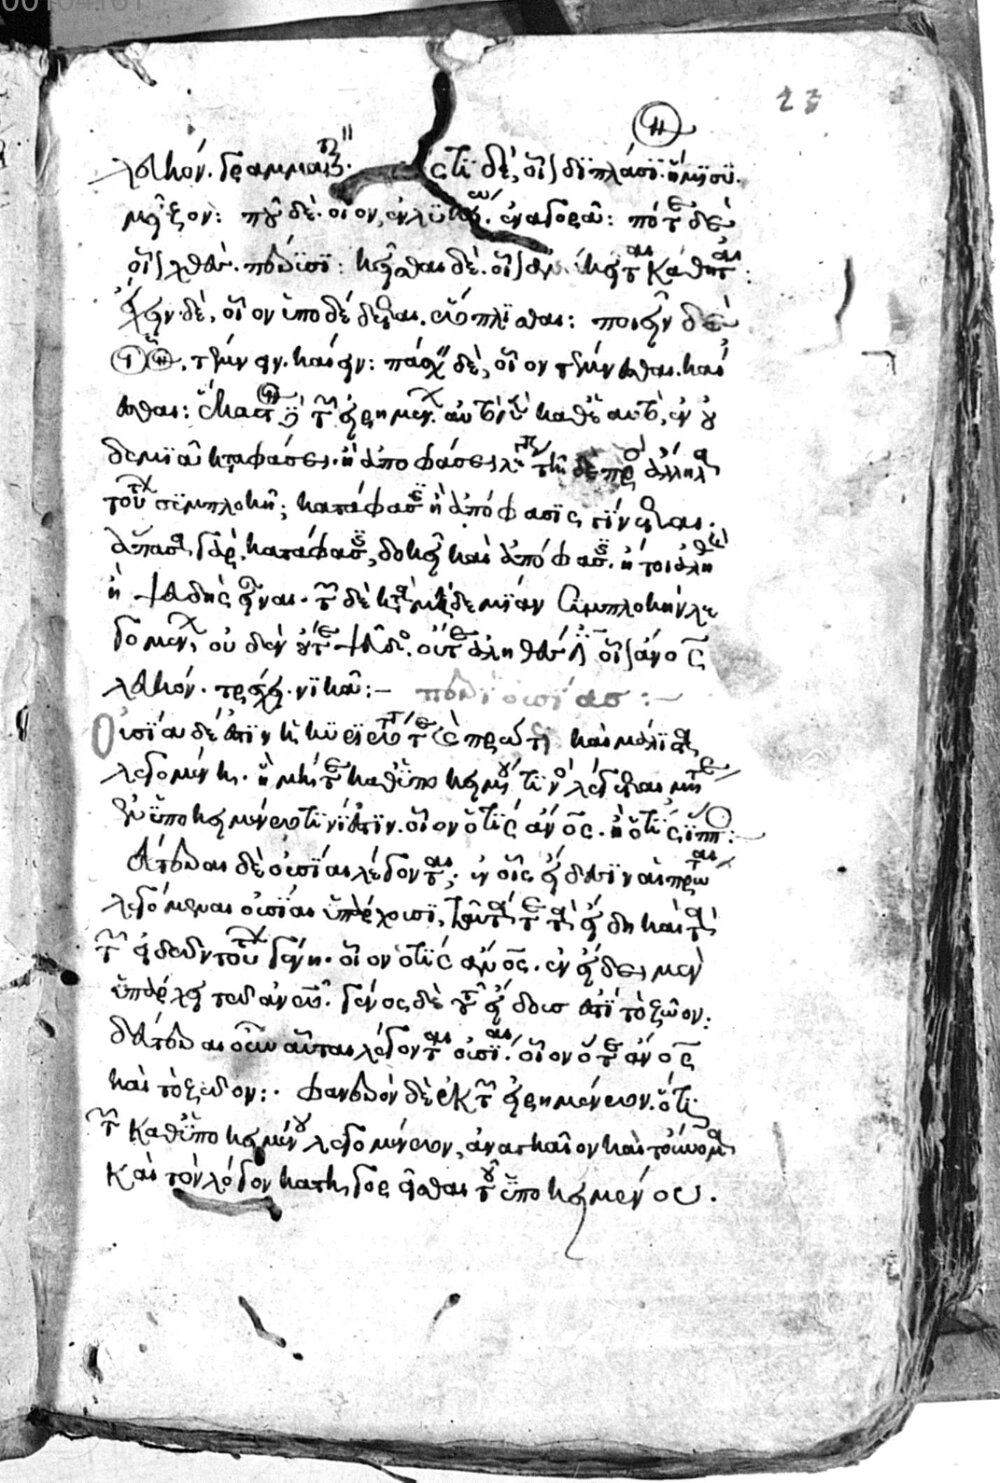 23
λευκόν. γραμματικόν. πρός τι δέ, οἷον διπλάσιον. ἥμισυ.
μεῖζον: ποῦ δὲ. οἷον, ἐν λυκείω. ἐν ἀγορᾶ: πότε δὲ
οἷον χθὲς. πέρυσι: κεῖσθαι δὲ. οἷον ἀνάκειται κάθηται:
ἔχειν δὲ, οἷον ὑποδέδεται. ὥπλισται: ποιεῖν δὲ
οἷον. τέμνειν. καίειν: πάσχειν δὲ, οἷον τέμνεσθαι. καί
εσθαι: ἕκαστον δὲ τῶν εἰρημένων. αὐτὸ καθ' αὑτὸ, ἐν οὐ
δεμιᾶ καταφάσει. ἢ ἀποφάσει λέγεται. τῆ δὲ πρὸς ἄλληλα
τούτων συμπλοκῆ; κατάφασις ἢ ἀπόφασις γίνεται.
ἅπασα γὰρ κατάφασις, δοκεῖ καὶ ἀπόφασις. ἤτοι ἀληθὴς
ἢ ψευδὴς εἶναι. τῶν δὲ κατὰ μηδεμίαν συμπλοκὴν λε
γομένων, οὐδὲν οὔτε ψεῦδος. οὔτε ἀληθές ἐστιν οἷον ἄνος
λευκόν. τρέχει. νικᾶ:–
περὶ οὐσίας:–
Οὐσία δέ ἐστιν ἡ κυριώτατά τε καὶ πρώτως καὶ μάλιστα
λεγομένη. ἣ μήτε καθ' ὑποκειμένου τινὸς λέγεται μήτε
ἐν ὑποκειμένω τινί ἐστιν. οἷον ὅ τὶς ἄνος. ἢ ὅ τὶς ἵππος:
δεύτεραι δὲ οὐσίαι λέγονται. ἐν οἷς εἴδεσιν αἱ πρώτως
λεγόμεναι οὐσίαι ὑπάρχουσι, ταῦτά τε τὰ εἴδη καὶ τὰ
τῶν εἰδῶν τούτων γένη. οἷον ὁ τὶς ἄνος. ἐν εἴδει μὲν
ὑπάρχει τῶ ἀνω. γένος δὲ τοῦ εἴδους ἐστὶ τὸ ζῶον:
δεύτεραι οὖν αὗται λέγονται οὐσίαι. οἷον ὅ τε ἄνος
καὶ τὸ ζῶον: φανερὸν δὲ ἐκ τῶν εἰρημένων. ὅτι
τῶν καθ' ὑποκειμένου λεγομένων, ἀναγκαῖον καὶ τοὔνομα
καὶ τὸν λόγον κατηγορεῖσθαι τοῦ ὑποκειμένου.